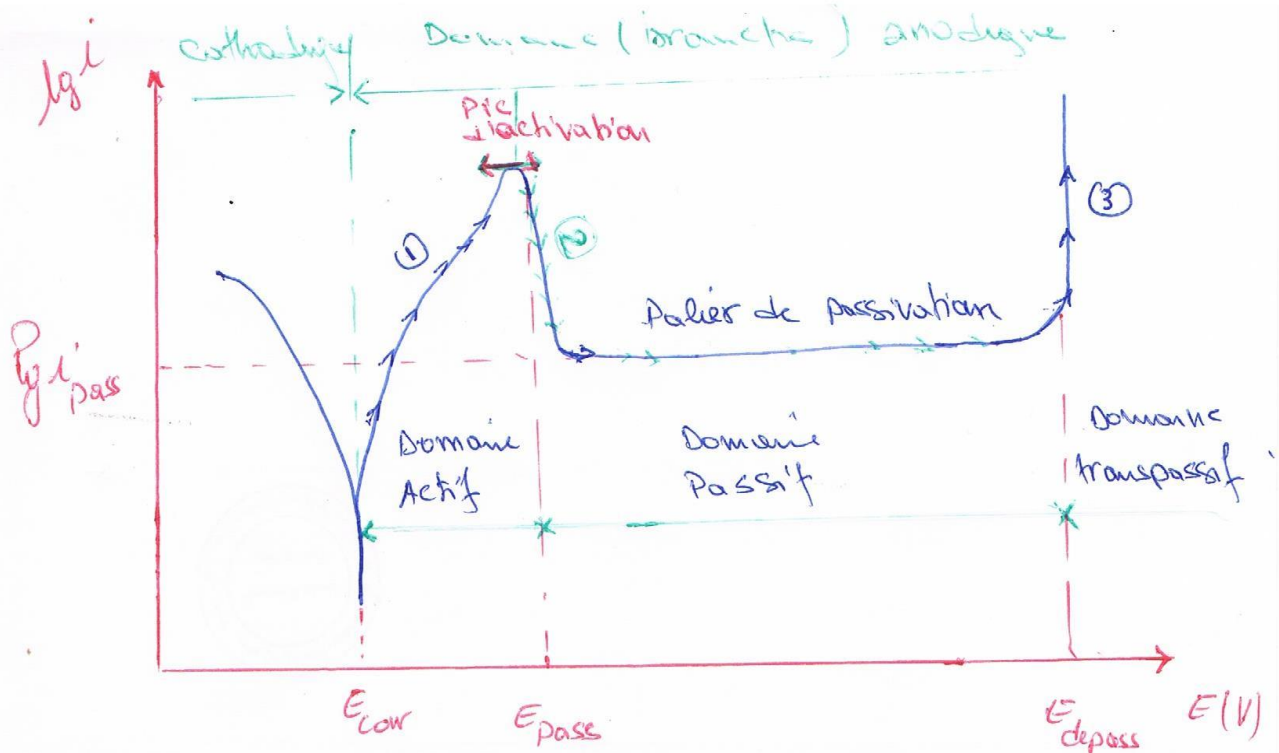 lg i
cathodique
Domaine (branche) anodique
Pic
d'activation
①
②
③
Palier de passivation
lg i pass
Domaine
Actif
Domaine
Passif
Domaine
transpassif
E corr
E pass
E depass
E(V)